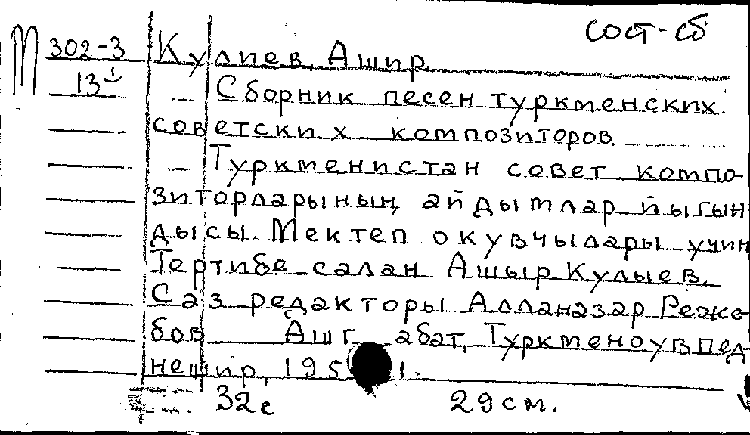 сост-сб
М 302-3 Кулиев, Ашир.
13 Сборник песен туркменских
советских композиторов.
Туркменистан совет компо-
зиторларының айдымлар йыгын
дысы. Мектеп окувчылары учин
Тертибе салан Ашыр Кулыев.
Саз редакторы Алланазар Реже-
бов Ашгабат, Туркменоувпед
нешир, 195
32с 29см.